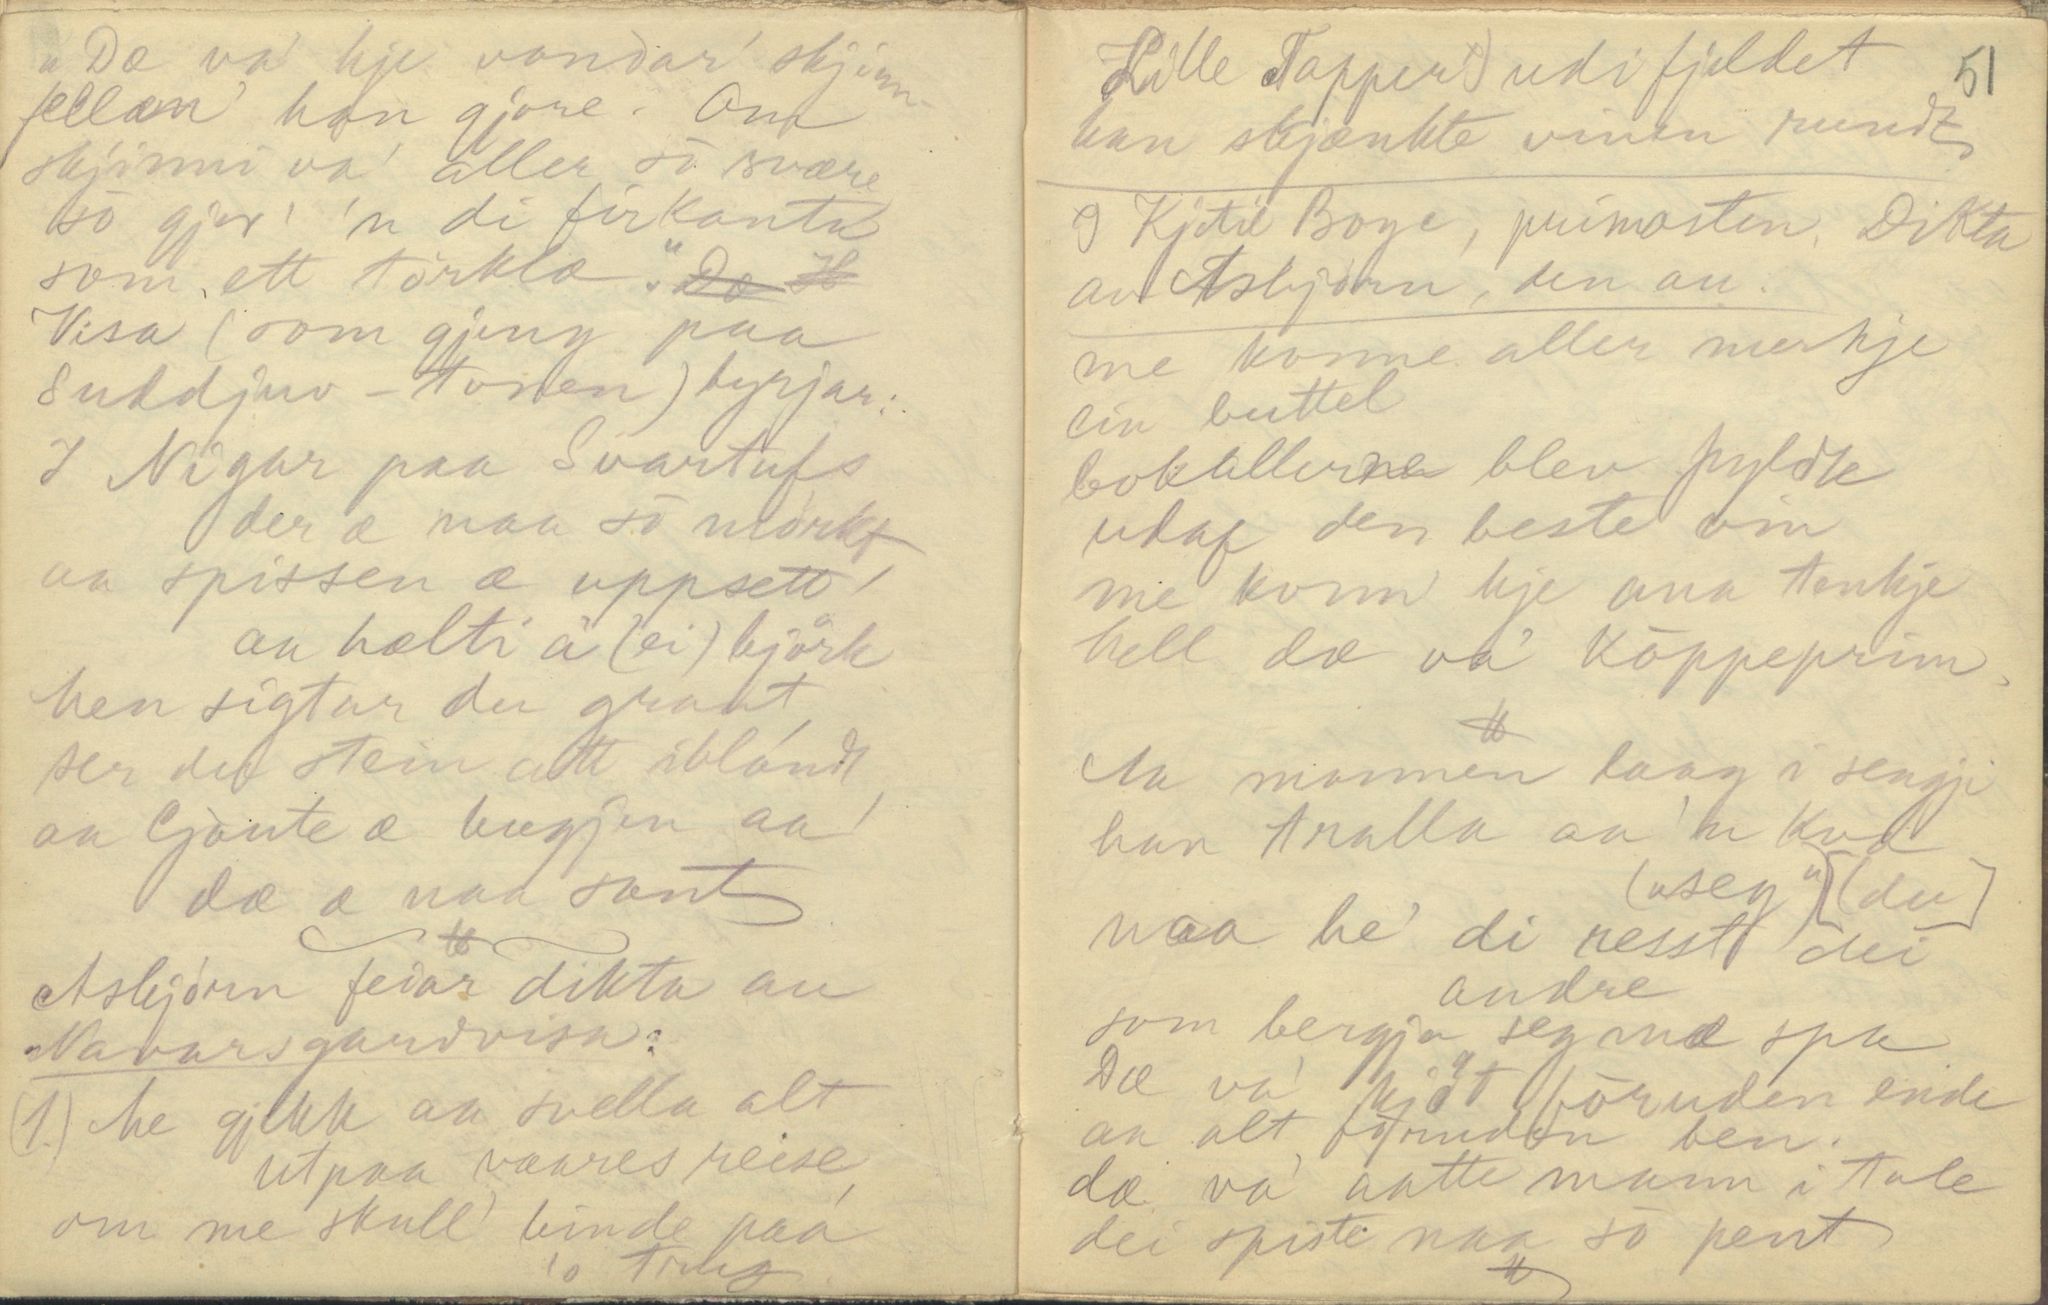 "Dæ va' kje vandar' skjinn-
fellan' han gjore. Om
skjinni va' aller sō svære
sō gjor' 'n di firkanta
som ett tōrklæ." Dæ H
Visa (som gjeng paa
Suldjuv-tonen) byrjar:
I Nigar paa Svartufs
der æ naa sō mōrkt
aa spissen æ uppsett'
aa hælti å (ei) bjōrk
hen sigtar du grant
ser du stein att iblandt
aa Gjønte æ bugjen aa'
dæ æ naa sant
Asbjørn feiar dikta au
Navarsgardvisa:
(1.) Me gjekk aa svella alt
utpaa vaares reise,
om me skull' binde paa
'o trug
51
Lille Tapper'n udi fjeldet
han skjænkte vinen rundt
I Kjetil Boge, primosten. Dikta
av Asbjørn, den au.
me konne aller merkje
ein buttel
bokallerne blev fyldte
udaf den beste vin
me konn' kje ana tenkje
hell dæ va' Kōppeprim.
Aa mannen laag i sengji
han tralla aa 'n kvd
("seg") [du]
naa he' di resst dei
andre
som bergja seg mæ spa
Dæ va' kjøt fōruden ende
aa alt fōruden ben.
dæ va' aatte mann i tale
dei spiste naa sō pent